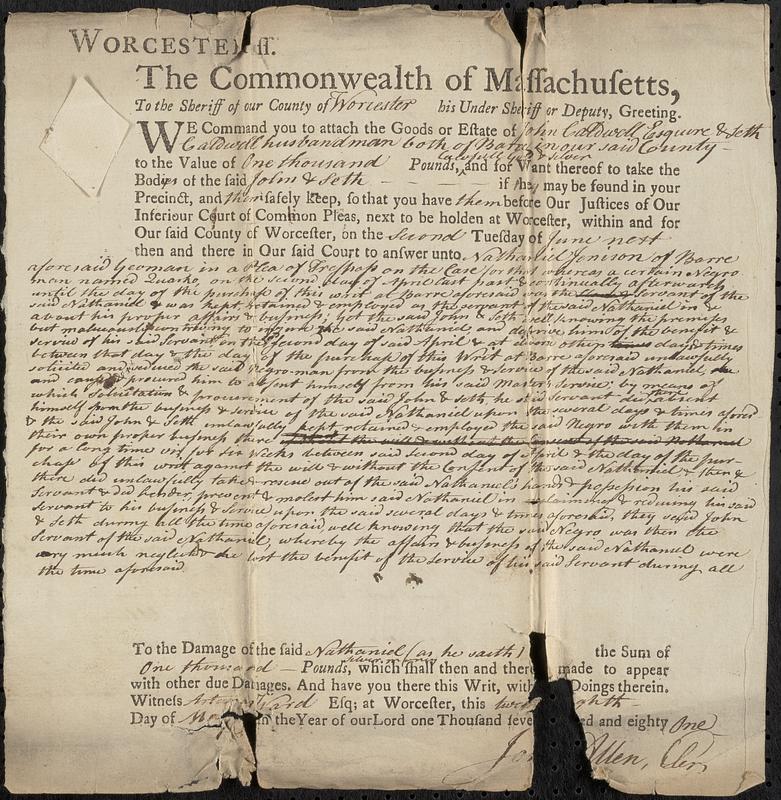 WORCESTER, ſſ.
The Commonwealth of Maſſachuſetts,
To the Sheriff of our County of Worcester his Under Sheriff or Deputy, Greeting.
WE Command you to attach the Goods or Eſtate of John Caldwell Esquire & Seth
Caldwell husbandman both of Barre in our said County
Lawfull Gold & Silver
to the Value of One thousand Pounds, and for Want thereof to take the
Bodies of the ſaid John & Seth if they may be found in your
Precinct, and them ſafely keep, ſo that you have them before Our Juſtices of Our
Inferiour Court of Common Pleas, next to be holden at Worceſter, within and for
Our ſaid County of Worceſter, on the Second Tueſday of June next
then and there in Our ſaid Court to anſwer unto Nathaniel Jenison of Barre
aforesaid Yeoman in a Plea of Trespass on the Case for that whereas a certain Negro
man named Quarko, on the second day of April last past & continually afterwards
until the day of the purchase of this writ at Barre aforesaid was the Servant of the
said Nathaniel & was kept retained & employed as the servant of the said Nathaniel in &
about his proper affairs & business; yet the said John & Seth well knowing the premises
but maliciously contriving to injure the said Nathaniel, and deprive him of the benefit &
service of his said Servant on the Second day of said April & at divers other times days & times
between that day & the day of the purchase of this Writ at Barre aforesaid unlawfully
solicited and seduced the said Negro-man from the business & service of the said Nathaniel,
and caused & procured him to absent himself from his said Masters service; by means of
which Solicitation & procurement of the said John & Seth, he said Servant did then absent
himself from the business & service of the said Nathaniel upon the several days & times afores'd
& the said John & Seth unlawfully kept retained & employed the said Negro with them in
their own proper business there against the will & without the Consent of the said Nathaniel
for a long time viz for six Weeks between said second day of April & the day of the pur-
chase of this writ against the will & without the Consent of the said Nathaniel & then &
there did unlawfully take & rescue out of the said Nathaniel's hands & possession his said
Servant & did hinder, prevent & molest him said Nathaniel in reclaiming & reducing his said
Servant to his business & Service upon the said several days & times aforesaid, they said John
& Seth during all the time aforesaid well knowing that the said Negro was then the
Servant of the said Nathaniel, whereby the affairs & business of the said Nathaniel were
very much neglected & he lost the benefit of the Service of his said Servant during all
the time aforesaid
To the Damage of the ſaid Nathaniel (as he saith) the Sum of
One thousand Pounds, which ſhall then and there made to appear
with other due Damages. And have you there this Writ, with Doings therein.
Witneſs Artemas Ward Eſq; at Worceſter, this twenty eighth
Day of May in the Year of our Lord one Thouſand ſeven hundred and eighty One
Allen, Cler